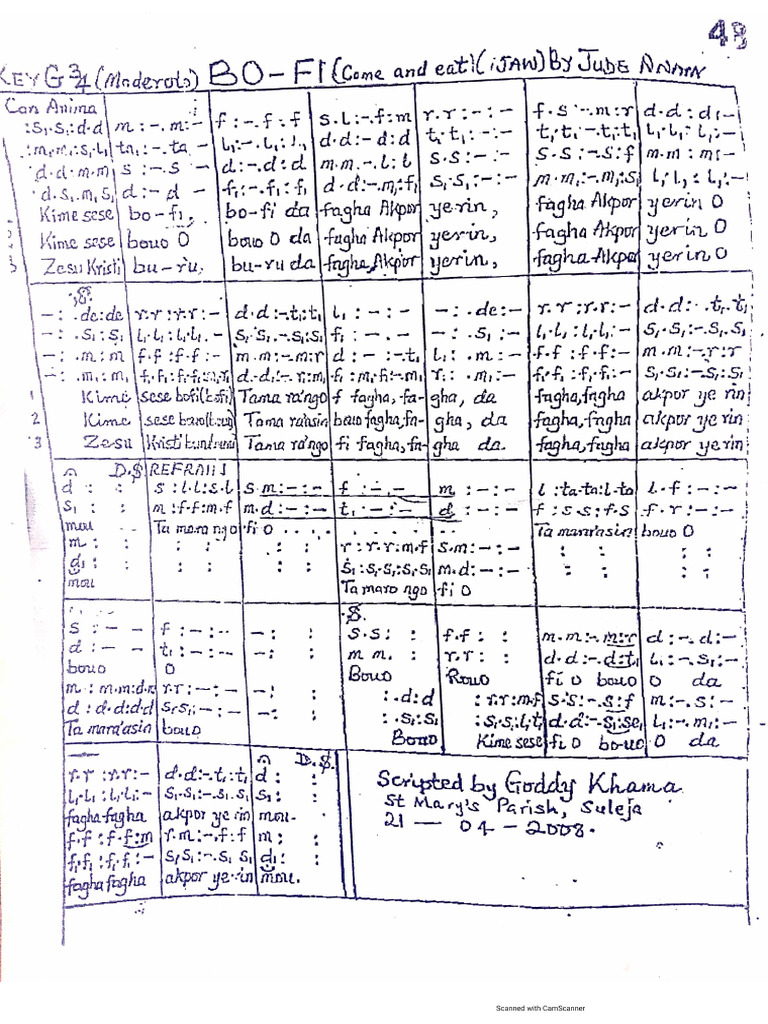 48
KEY G 3/4 (Moderato) BO-FI (Come and eat) (IJAW) By JUDE NNAM
Con Anima
:S₁.S₁:d.d | m:-.m:- | f:-.f:f | s.l:-.f:m | r.r:-:- | f.s:-.m:r | d.d:d:-
:m₁.m₁:s₁.l₁ | ta₁:-.ta₁:- | l₁:-.l₁:l₁ | d.d:-.d:d | t₁.t₁:-:- | t₁.t₁:-.t₁:t₁ | l₁.l₁:l₁:-
:d.d:m.m | s:-.s:- | d:-.d:d | m.m:-.l:l | s.s:-:- | s.s:-.s:f | m.m:m:-
:d.s₁:m₁.s₁ | d:-.d:- | f₁:-.f₁:f₁ | d.d:-.m₁:f₁ | s₁.s₁:-:- | m.m₁:-.m₁:s₁ | l₁.l₁:l₁:-
Kime sese | bo-fi, | bo-fi da | fagha Akpor | yerin, | fagha Akpor | yerin O
Kime sese | bouo O | bouo O da | fagha Akpor | yerin, | fagha Akpor | yerin O
3 Zesu Kristi | bu-ru, | bu-ru da | fagha Akpor | yerin, | fagha Akpor | yerin O
.S.
-:.de:de | r.r:r.r:- | d.d:-.t₁:t₁ | l₁:-:- | -:.de:- | r.r:r.r:- | d.d:-.t₁.t₁
-:.s₁:s₁ | l₁.l₁:l₁.l₁.- | s₁.s₁.-.s₁:s₁ | f₁:-.- | -:.s₁:- | l₁.l₁:l₁.l₁:- | s₁.s₁:-.s₁.s₁
-:.m:m | f.f:f.f:- | m.m:-.m:r | d:-:-.t₁ | l₁:.m:- | f.f:f.f:- | m.m:-.r:r
1 Kime | sese bofi | Tama ra'ngo | f fagha, fa- | gha, da | fagha, fagha | akpor ye rin
2 Kime | sese | Tama ra'asin | bouo fagha, fa- | gha, da | fagha, fagha | akpor ye rin
3 Zesu | Kristi | Tama ra'ngo | fi fagha, fa- | gha da | fagha, fagha | akpor ye rin
D.S REFRAIN
d : : | s:l.l:s.l | s.m:-:- | f:-.- | m:-:- | l:ta.ta:l.ta | l.f:-:-
s₁: : | m:f.f:m.f | m.d:-:- | t₁:-:- | d:-:- | f:s.s:f.s | f.r:-:-
mou | Ta mara ngo | fi O | Ta mara'asin | bouo O
m: : | : : | : : | r:r.r:m.f | s.m:-:- | : : | : :
d₁: : | : : | : : | s₁:s₁.s₁:s₁.s₁ | m.d:-:- | : : | : :
mou | Ta mara ngo | fi O
.S.
s:-:- | f:-:- | -: : | s.s: : | f.f: : | m.m:-.m:r | d:-.d:-
d:-:- | t₁:-:- | -: : | m.m.: : | r.r: : | d.d:-.d:t₁ | l₁:-.s₁:-
bouo | O | Bouo | Rouo | fi O bouo | O da
m:m.m:d.r | r.r:-:- | -: : | :.d:d | :r.r:m.f | s.s:-.s:f | m:-.s:-
d:d.d:d.d | s₁.s₁:-:- | -: : | :.s₁:s₁ | :s₁.s₁:l₁.t₁ | d.d:-.s₁:se₁ | l₁:-.m₁:-
Ta mara'asin | bouo | Bouo | Kime sese | fi O bo-uo | O da
D.S.
r.r:r.r:- | d.d:-.t₁:t₁ | d: :
l₁.l₁:l₁.l₁:- | s₁.s₁:-.s₁.s₁ | s₁: :
fagha-fagha | akpor ye rin | mou.
f.f:f.f:m | r.m:-.f:f | m: :
f₁.f₁:f₁.f₁:- | s₁.s₁:-.s₁.s₁ | d₁: :
fagha fagha | akpor ye-rin | mou.
Scripted by Goddy Khama
St Mary's Parish, Suleja
21 — 04 - 2008.
Scanned with CamScanner